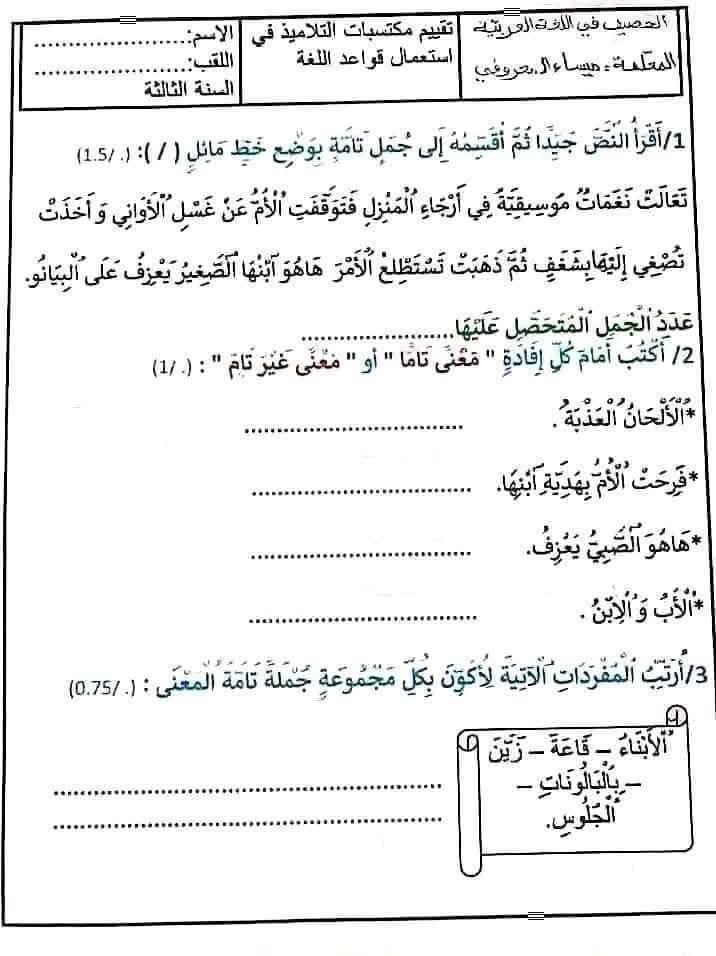 الحصيف في اللغة العربية
المعلمة: ميساء المعروفي
تقييم مكتسبات التلاميذ في
استعمال قواعد اللغة
الاسم:........................
اللقب:........................
السنة الثالثة
1/أَقْرَأُ النَّصَّ جَيِّدًا ثُمَّ أُقَسِّمُهُ إِلَى جُمَلٍ تَامَّةٍ بِوَضْعِ خَطٍّ مَائِلٍ ( / ): (. /1.5)
تَعَالَتْ نَغَمَاتٌ مُوسِيقِيَّةٌ فِي أَرْجَاءِ ٱلْمَنْزِلِ فَتَوَقَّفَتِ ٱلْأُمُّ عَنْ غَسْلِ ٱلْأَوَانِي وَ أَخَذَتْ
تُصْغِي إِلَيْهَا بِشَغَفٍ ثُمَّ ذَهَبَتْ تَسْتَطْلِعُ ٱلْأَمْرَ هَاهُوَ ٱبْنُهَا ٱلصَّغِيرُ يَعْزِفُ عَلَى ٱلْبِيَانُو.
عَدَدُ ٱلْجُمَلِ ٱلْمُتَحَصَّلِ عَلَيْهَا.......................
2/ أَكْتُبُ أَمَامَ كُلِّ إِفَادَةٍ " مَعْنًى تَامًّا " أو " مَعْنًى غَيْرَ تَامٍّ " : (. /1)
*ٱلْأَلْحَانُ ٱلْعَذْبَةُ . ..................................
*فَرِحَتْ ٱلْأُمُّ بِهَدِيَّةِ ٱبْنِهَا. ..................................
*هَاهُوَ ٱلصَّبِيُّ يَعْزِفُ. ..................................
*ٱلْأَبُ وَ ٱلْاِبْنُ . ..................................
3/أُرَتِّبُ ٱلْمُفْرَدَاتِ ٱلْآتِيَةَ لِأُكَوِّنَ بِكُلِّ مَجْمُوعَةٍ جُمْلَةً تَامَّةَ ٱلْمَعْنَى : (. /0.75)
ٱلْأَبْنَاءُ – قَاعَةَ – زَيَّنَ
– بِٱلْبَالُونَاتِ –
ٱلْجُلُوسِ.
............................................................
............................................................